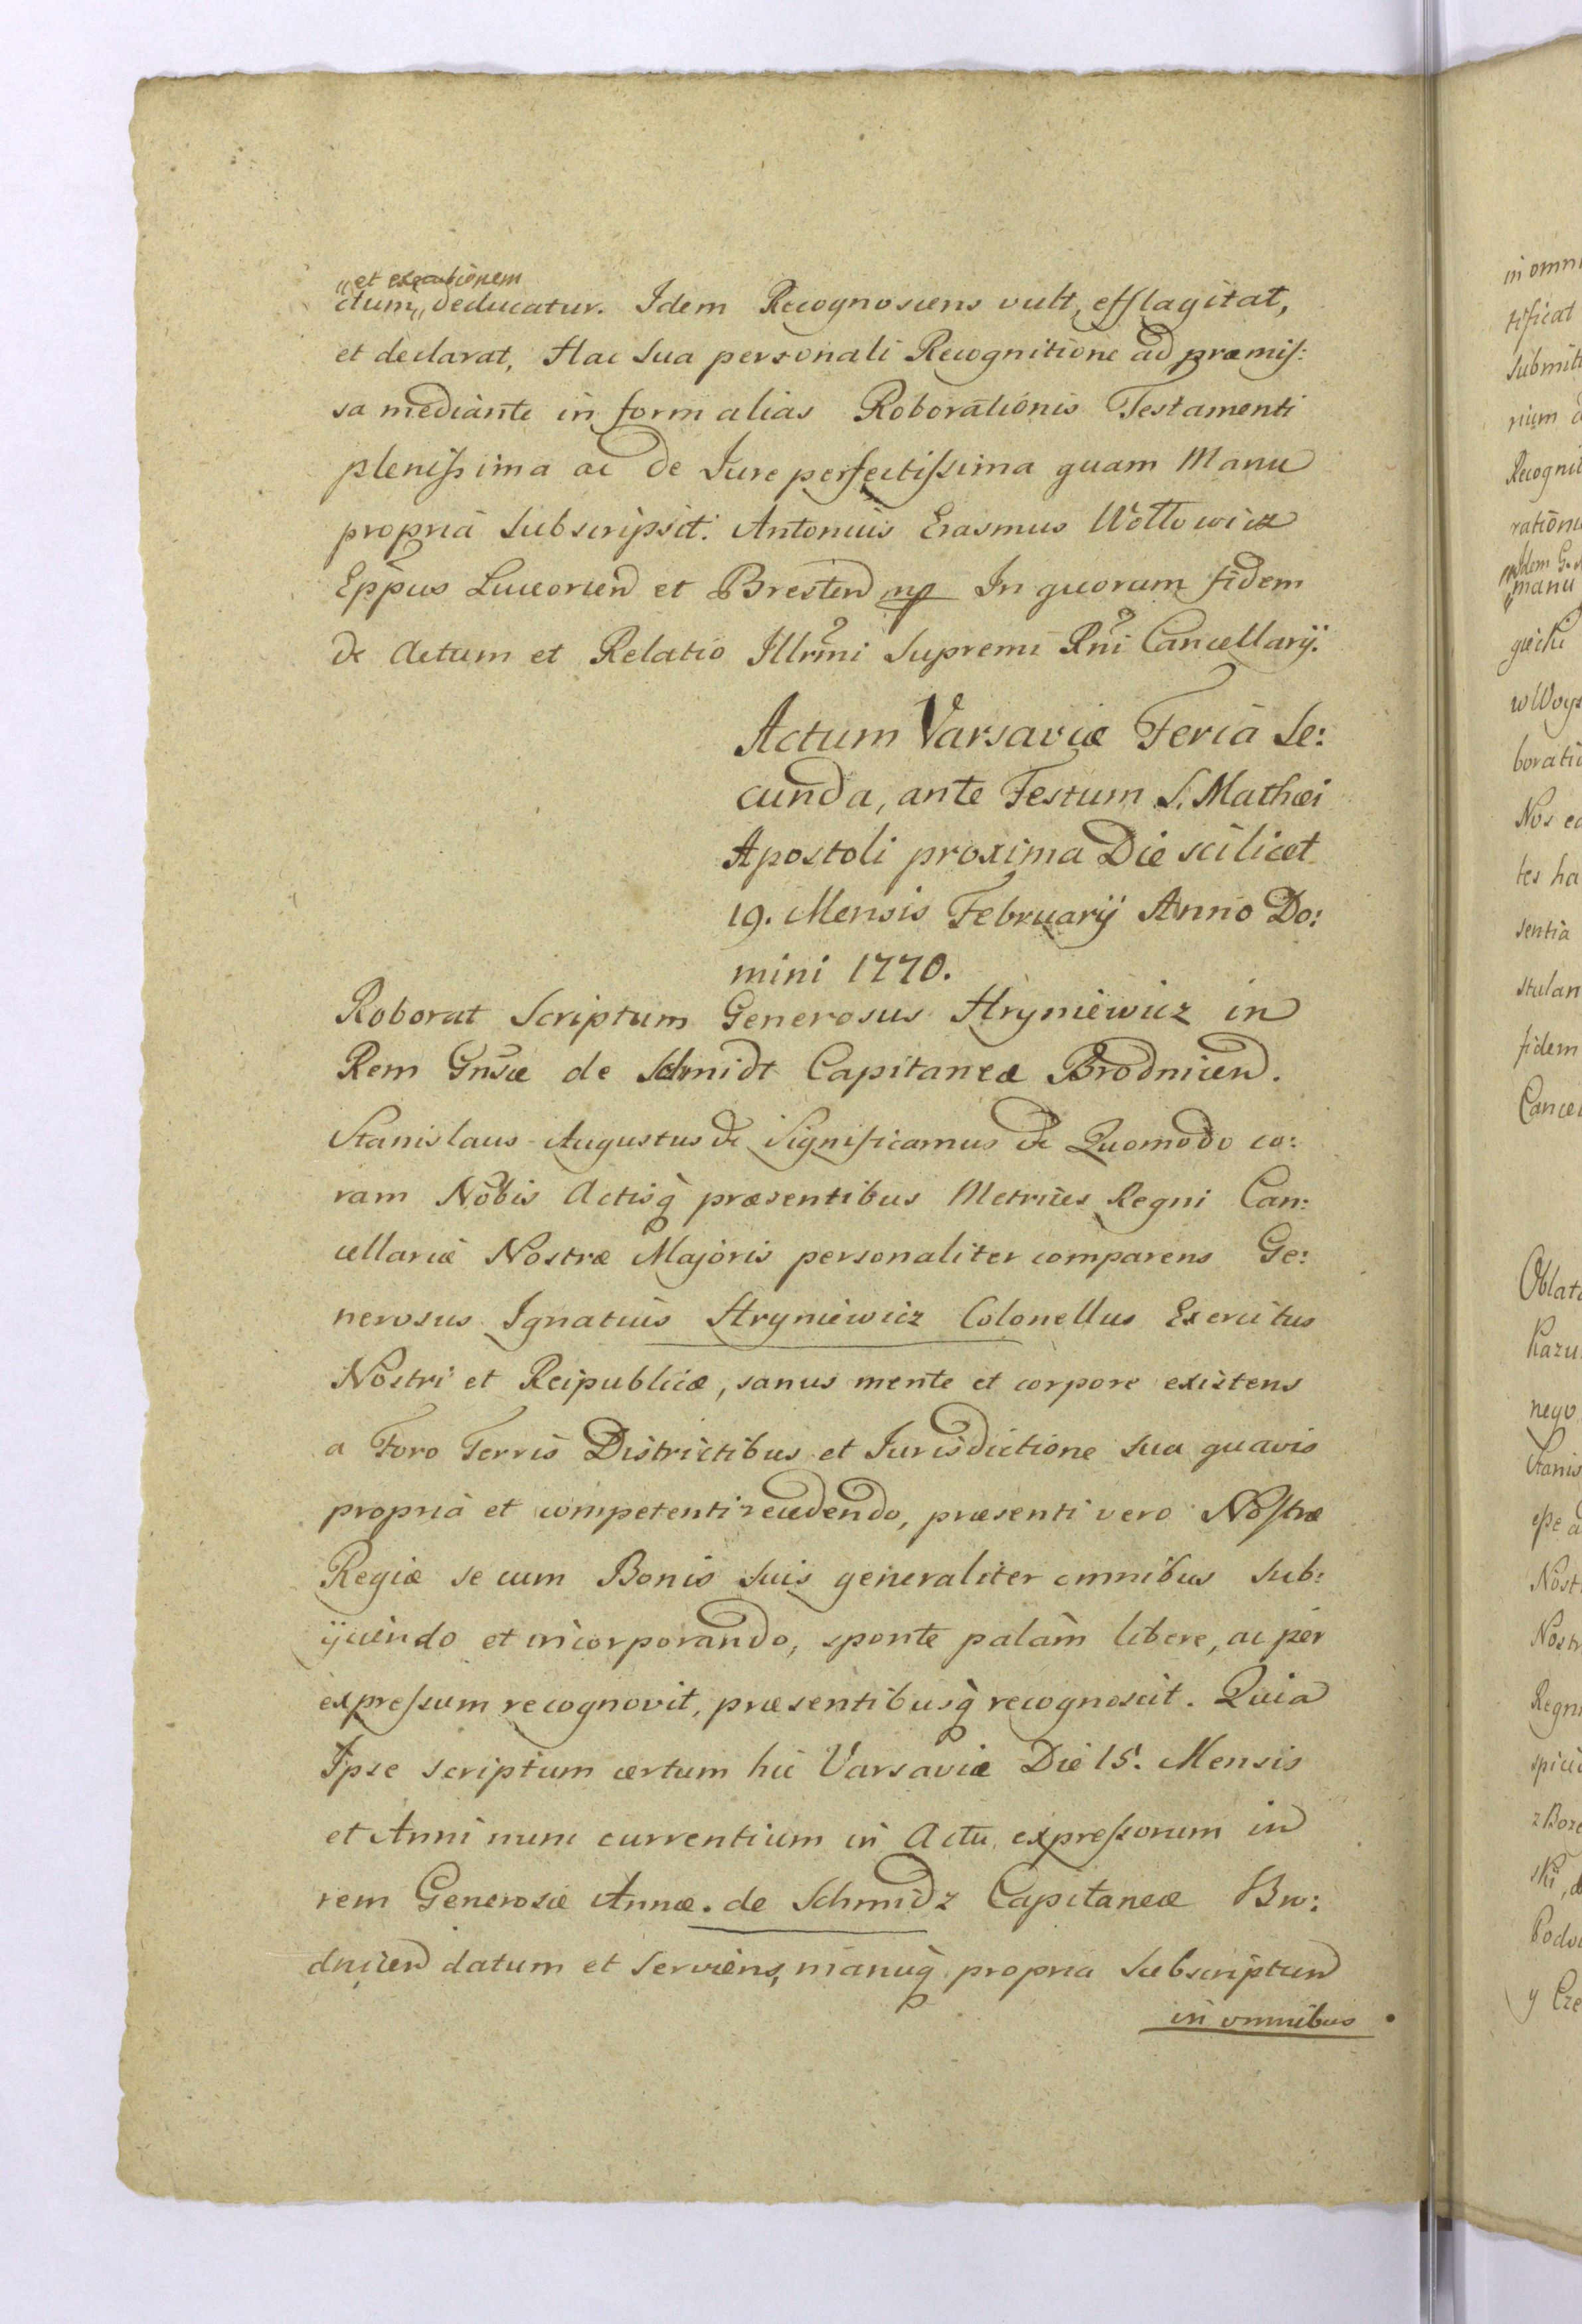 et executionem
"ctum„ deducatur. Idem Recognoscens vult, efflagitat,
et declarat, Hac Sua personali Recognitione ad præmis:
sa mediante in form alias Roborationis Testamenti
plenissima ac de Jure perfectissima quam Manu
propria Subscripsit. Antonius Erasmus Wołłowicz
Eppus Luceorien et Bresten mp In quorum fidem
&c Actum et Relatio Illrmi Supremi Rni Cancellarij.
Actum Varsaviæ Feria Se:
cunda, ante Festum S. Mathæi
Apostoli proxima Die scilicet
19. Mensis Februarij Anno Do:
mini 1770.
Roborat Scriptum Generosus Hryniewicz in
Rem Gnsæ de Schmidt Capitaneæ Brodnicen.
Stanislaus Augustus &c Significamus &c Quomodo co:
ram Nobis Actisq præsentibus Metrices Regni Can:
cellariæ Nostræ Majoris personaliter comparens Ge:
nerosus Ignatius Hryniewicz Colonellus Exercitus
Nostri et Reipublicæ, sanus mente et corpore existens
a Foro Terris Districtibus et Jurisdictione sua quavis
propria et competenti recedendo, præsenti vero Nostræ
Regiæ se cum Bonis suis generaliter omnibus sub:
ijciendo et incorporando, sponte palam libere, ac per
expressum recognovit, præsentibusq recognoscit. Quia
Ipse scriptum certum hic Varsaviæ Die 15. Mensis
et Anni nunc currentium in Actu expressorum in
rem Generosæ Annæ. de Schmidz Capitaneæ Bro:
dnicen datum et serviens, manuq propria subscriptum
in omnibus
in omni
tificat
submit
rium
Recognit
ration
Idem G.
manu
gicki
wWoys
borati
Nos ea
tes ha
sentia
stulan
fidem
Cancel
Oblat
Kazu
nego
Stanis
esse a
Nost
Nostr
Regn
spici
z Boze
ski, d
Podo
y Cze